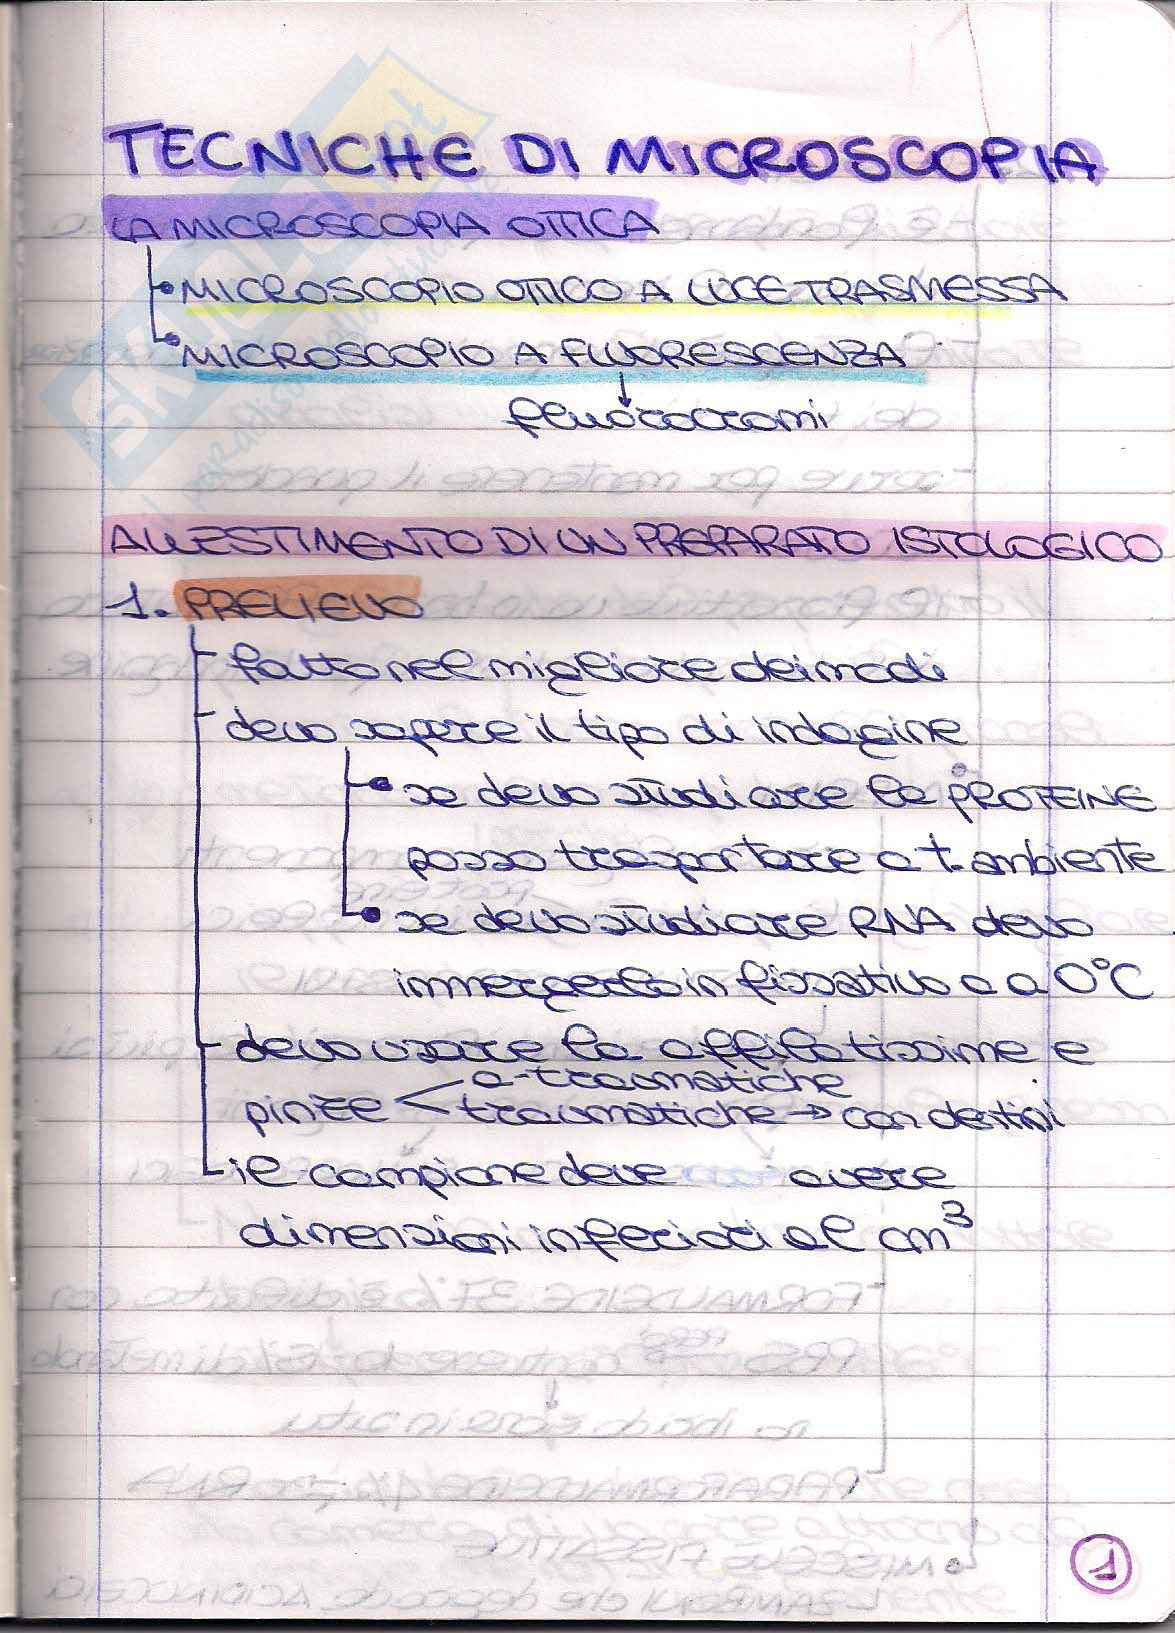 TECNICHE DI MICROSCOPIA
LA MICROSCOPIA OTTICA
MICROSCOPIO OTTICO A LUCE TRASMESSA
MICROSCOPIO A FLUORESCENZA
fluorocromi
ALLESTIMENTO DI UN PREPARATO ISTOLOGICO
1. PRELIEVO
fatto nel migliore dei modi
devo sapere il tipo di indagine
se devo studiare le PROTEINE
posso trasportare a t. ambiente
se devo studiare RNA devo
immergerlo in fissativo a 0°C
devo usare affilatissime e
a-traumatiche
pinze < traumatiche → con dentini
il campione deve avere
dimensioni inferiori al cm³
1
SKUOLA.net
il paradiso dello studente